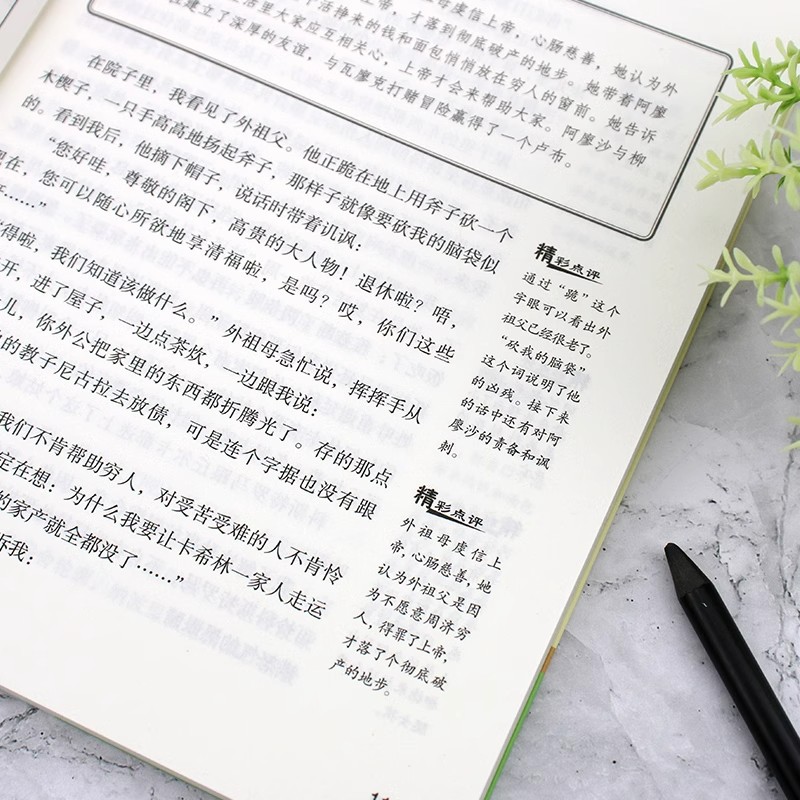 母虔信上帝，心肠慈善，她认为外
上帝，才落到彻底破产的地步。她带着阿廖
活挣来的钱和面包悄悄放在穷人的窗前。她告诉
生活里大家应互相关心，上帝才会来帮助大家。阿廖沙与柳
建立了深厚的友谊，与瓦廖克打赌冒险赢得了一个卢布。
在院子里，我看见了外祖父。他正跪在地上用斧子砍一个
木楔子，一只手高高地扬起斧子，那样子就像要砍我的脑袋似
的。看到我后，他摘下帽子，说话时带着讥讽：
“您好哇，尊敬的阁下，高贵的大人物！退休啦？唔，
现在，您可以随心所欲地享清福啦，是吗？哎，你们这些
……”
“得啦，我们知道该做什么。”外祖母急忙说，挥挥手从
开，进了屋子，一边点茶炊，一边跟我说：
儿，你外公把家里的东西都折腾光了。存的那点
的教子尼古拉去放债，可是连个字据也没有跟
我们不肯帮助穷人，对受苦受难的人不肯怜
定在想：为什么我要让卡希林一家人走运
的家产就全都没了……”
诉我：
精彩点评
通过“跪”这个
字眼可以看出外
祖父已经很老了。
“砍我的脑袋”
这个词说明了他
的凶残。接下来
的话中还有对阿
廖沙的责备和讽
刺。
精彩点评
外祖母虔信上
帝，心肠慈善，她
认为外祖父是因
为不愿意周济穷
人，得罪了上帝，
才落了个彻底破
产的地步。